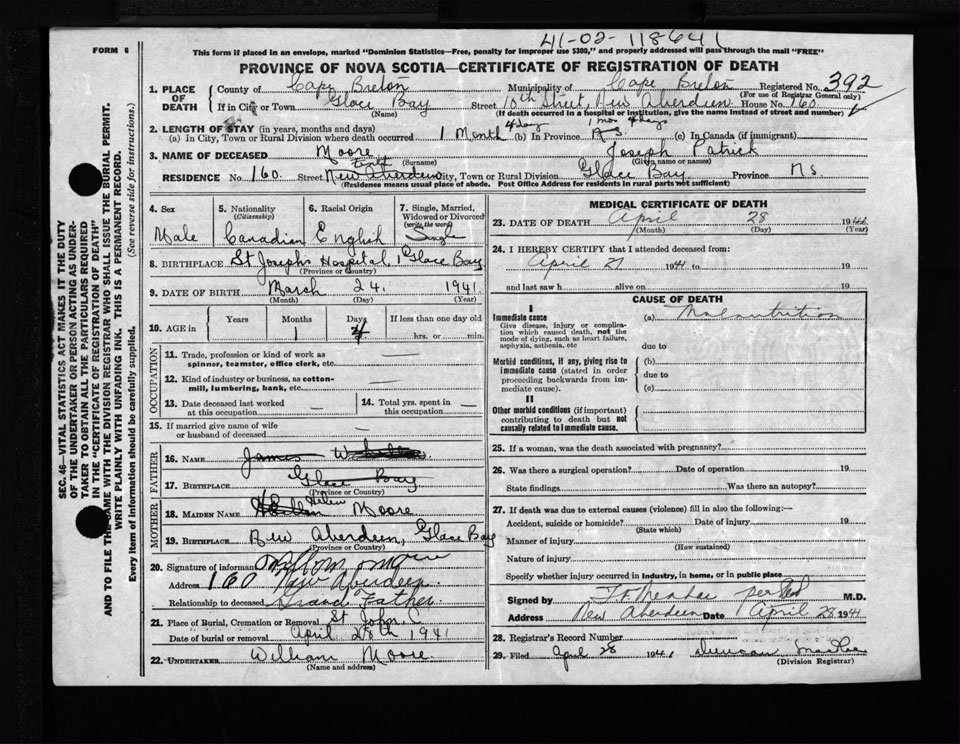 41-02-118641
FORM 6
This form if placed in an envelope, marked "Dominion Statistics—Free, penalty for improper use $300," and properly addressed will pass through the mail "FREE"
PROVINCE OF NOVA SCOTIA—CERTIFICATE OF REGISTRATION OF DEATH
SEC. 46—VITAL STATISTICS ACT MAKES IT THE DUTY
OF THE UNDERTAKER OR PERSON ACTING AS UNDER-
TAKER TO OBTAIN ALL THE PARTICULARS REQUIRED
IN THE "CERTIFICATE OF REGISTRATION OF DEATH"
AND TO FILE THE SAME WITH THE DIVISION REGISTRAR WHO SHALL ISSUE THE BURIAL PERMIT.
WRITE PLAINLY WITH UNFADING INK. THIS IS A PERMANENT RECORD.
Every item of information should be carefully supplied. (See reverse side for instructions.)
1. PLACE OF DEATH County of Cape Breton Municipality of Cape Breton Registered No. 392
(For use of Registrar General only)
If in City or Town Glace Bay Street 10th Street, New Aberdeen House No. 160
(Name) (If death occurred in a hospital or institution, give the name instead of street and number)
2. LENGTH OF STAY (in years, months and days)
(a) In City, Town or Rural Division where death occurred 1 Month 4 days (b) In Province 1 mo 4 days NS (c) In Canada (if immigrant)
3. NAME OF DECEASED Moore Joseph Patrick
(Surname) (Given name or names)
RESIDENCE No. 160 Street New Aberdeen City, Town or Rural Division Glace Bay Province NS
(Residence means usual place of abode. Post Office Address for residents in rural parts not sufficient)
4. Sex
Male
5. Nationality
(Citizenship)
Canadian
6. Racial Origin
English
7. Single, Married,
Widowed or Divorced
(write the word)
Single
8. BIRTHPLACE St Josephs Hospital, Glace Bay
(Province or Country)
9. DATE OF BIRTH March 24 1941
(Month) (Day) (Year)
10. AGE in Years Months Days If less than one day old
1 4 hrs. or min.
OCCUPATION
11. Trade, profession or kind of work as
spinner, teamster, office clerk, etc. —
12. Kind of industry or business, as cotton-
mill, lumbering, bank, etc. —
13. Date deceased last worked
at this occupation —
14. Total yrs. spent in
this occupation —
15. If married give name of wife
or husband of deceased —
FATHER
16. NAME James
17. BIRTHPLACE Glace Bay
(Province or Country)
MOTHER
18. MAIDEN NAME Helen Moore
19. BIRTHPLACE New Aberdeen, Glace Bay
(Province or Country)
20. Signature of informant
Address 160 New Aberdeen
Relationship to deceased Grand Father
21. Place of Burial, Cremation or Removal St John
Date of burial or removal April 28th 1941
22. UNDERTAKER William Moore
(Name and address)
MEDICAL CERTIFICATE OF DEATH
23. DATE OF DEATH April 28 1941
(Month) (Day) (Year)
24. I HEREBY CERTIFY that I attended deceased from:
April 27 1941 to 19
and last saw h alive on 19
CAUSE OF DEATH
I
Immediate cause (a) Malnutrition
Give disease, injury or complica-
tion which caused death, not the
mode of dying, such as heart failure,
asphyxia, asthenia, etc
due to
Morbid conditions, if any, giving rise to
immediate cause (stated in order
proceeding backwards from im-
mediate cause).
(b)
due to
(c)
II
Other morbid conditions (if important)
contributing to death but not
causally related to immediate cause.
25. If a woman, was the death associated with pregnancy?
26. Was there a surgical operation? Date of operation 19
State findings Was there an autopsy?
27. If death was due to external causes (violence) fill in also the following:—
Accident, suicide or homicide? Date of injury 19
(State which)
Manner of injury
(How sustained)
Nature of injury
Specify whether injury occurred in industry, in home, or in public place
Signed by M.D.
Address New Aberdeen Date April 28 1941
28. Registrar's Record Number
29. Filed April 28 1941 Duncan
(Division Registrar)